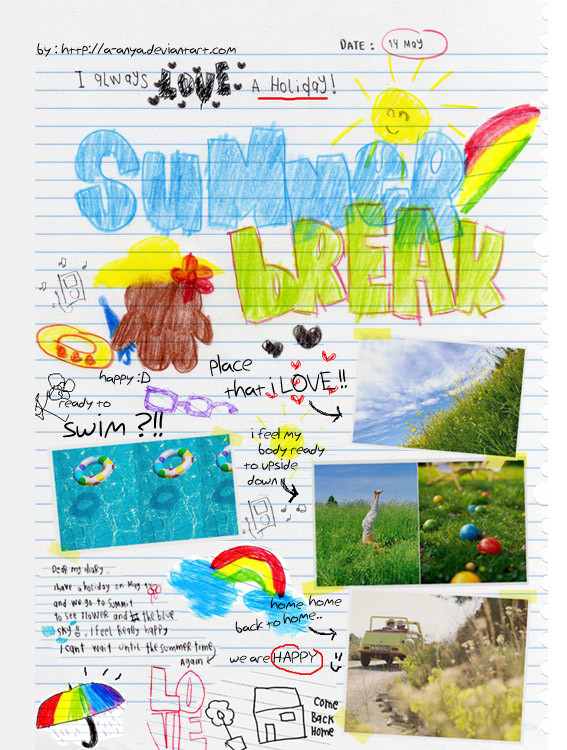 by: http://a-anya.deviantart.com
DATE: 14 May
I always LOVE A Holiday!
SUMMER
BREAK
happy :D
Place
that i LOVE!!
ready to
swim?!!
i feel my
body ready
to upside
down!!
Dear my diary
i have a holiday on May
and we go to summit
to see flower and the blue
sky!, I feel Really happy
I cant wait until the summer time
Again
home home
back to home..
we are HAPPY !!
LOVE
Come
Back
Home